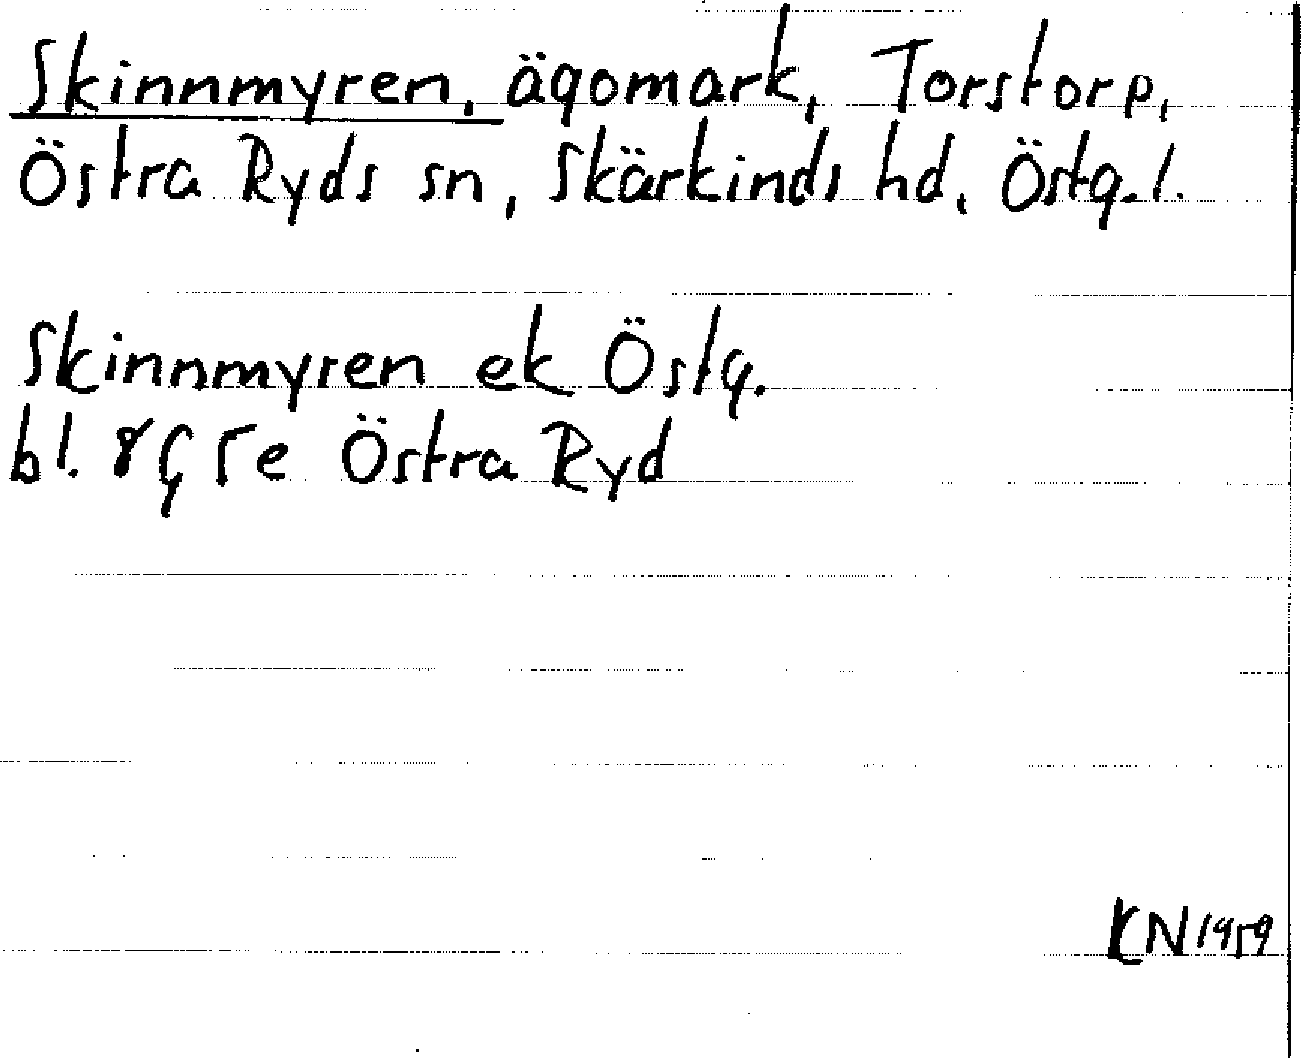 Skinnmyren, ägomark, Torstorp,
Östra Ryds sn, Skärkinds hd, Östg. l.
Skinnmyren ek Östg.
bl. 8G 5e Östra Ryd
KN 1959